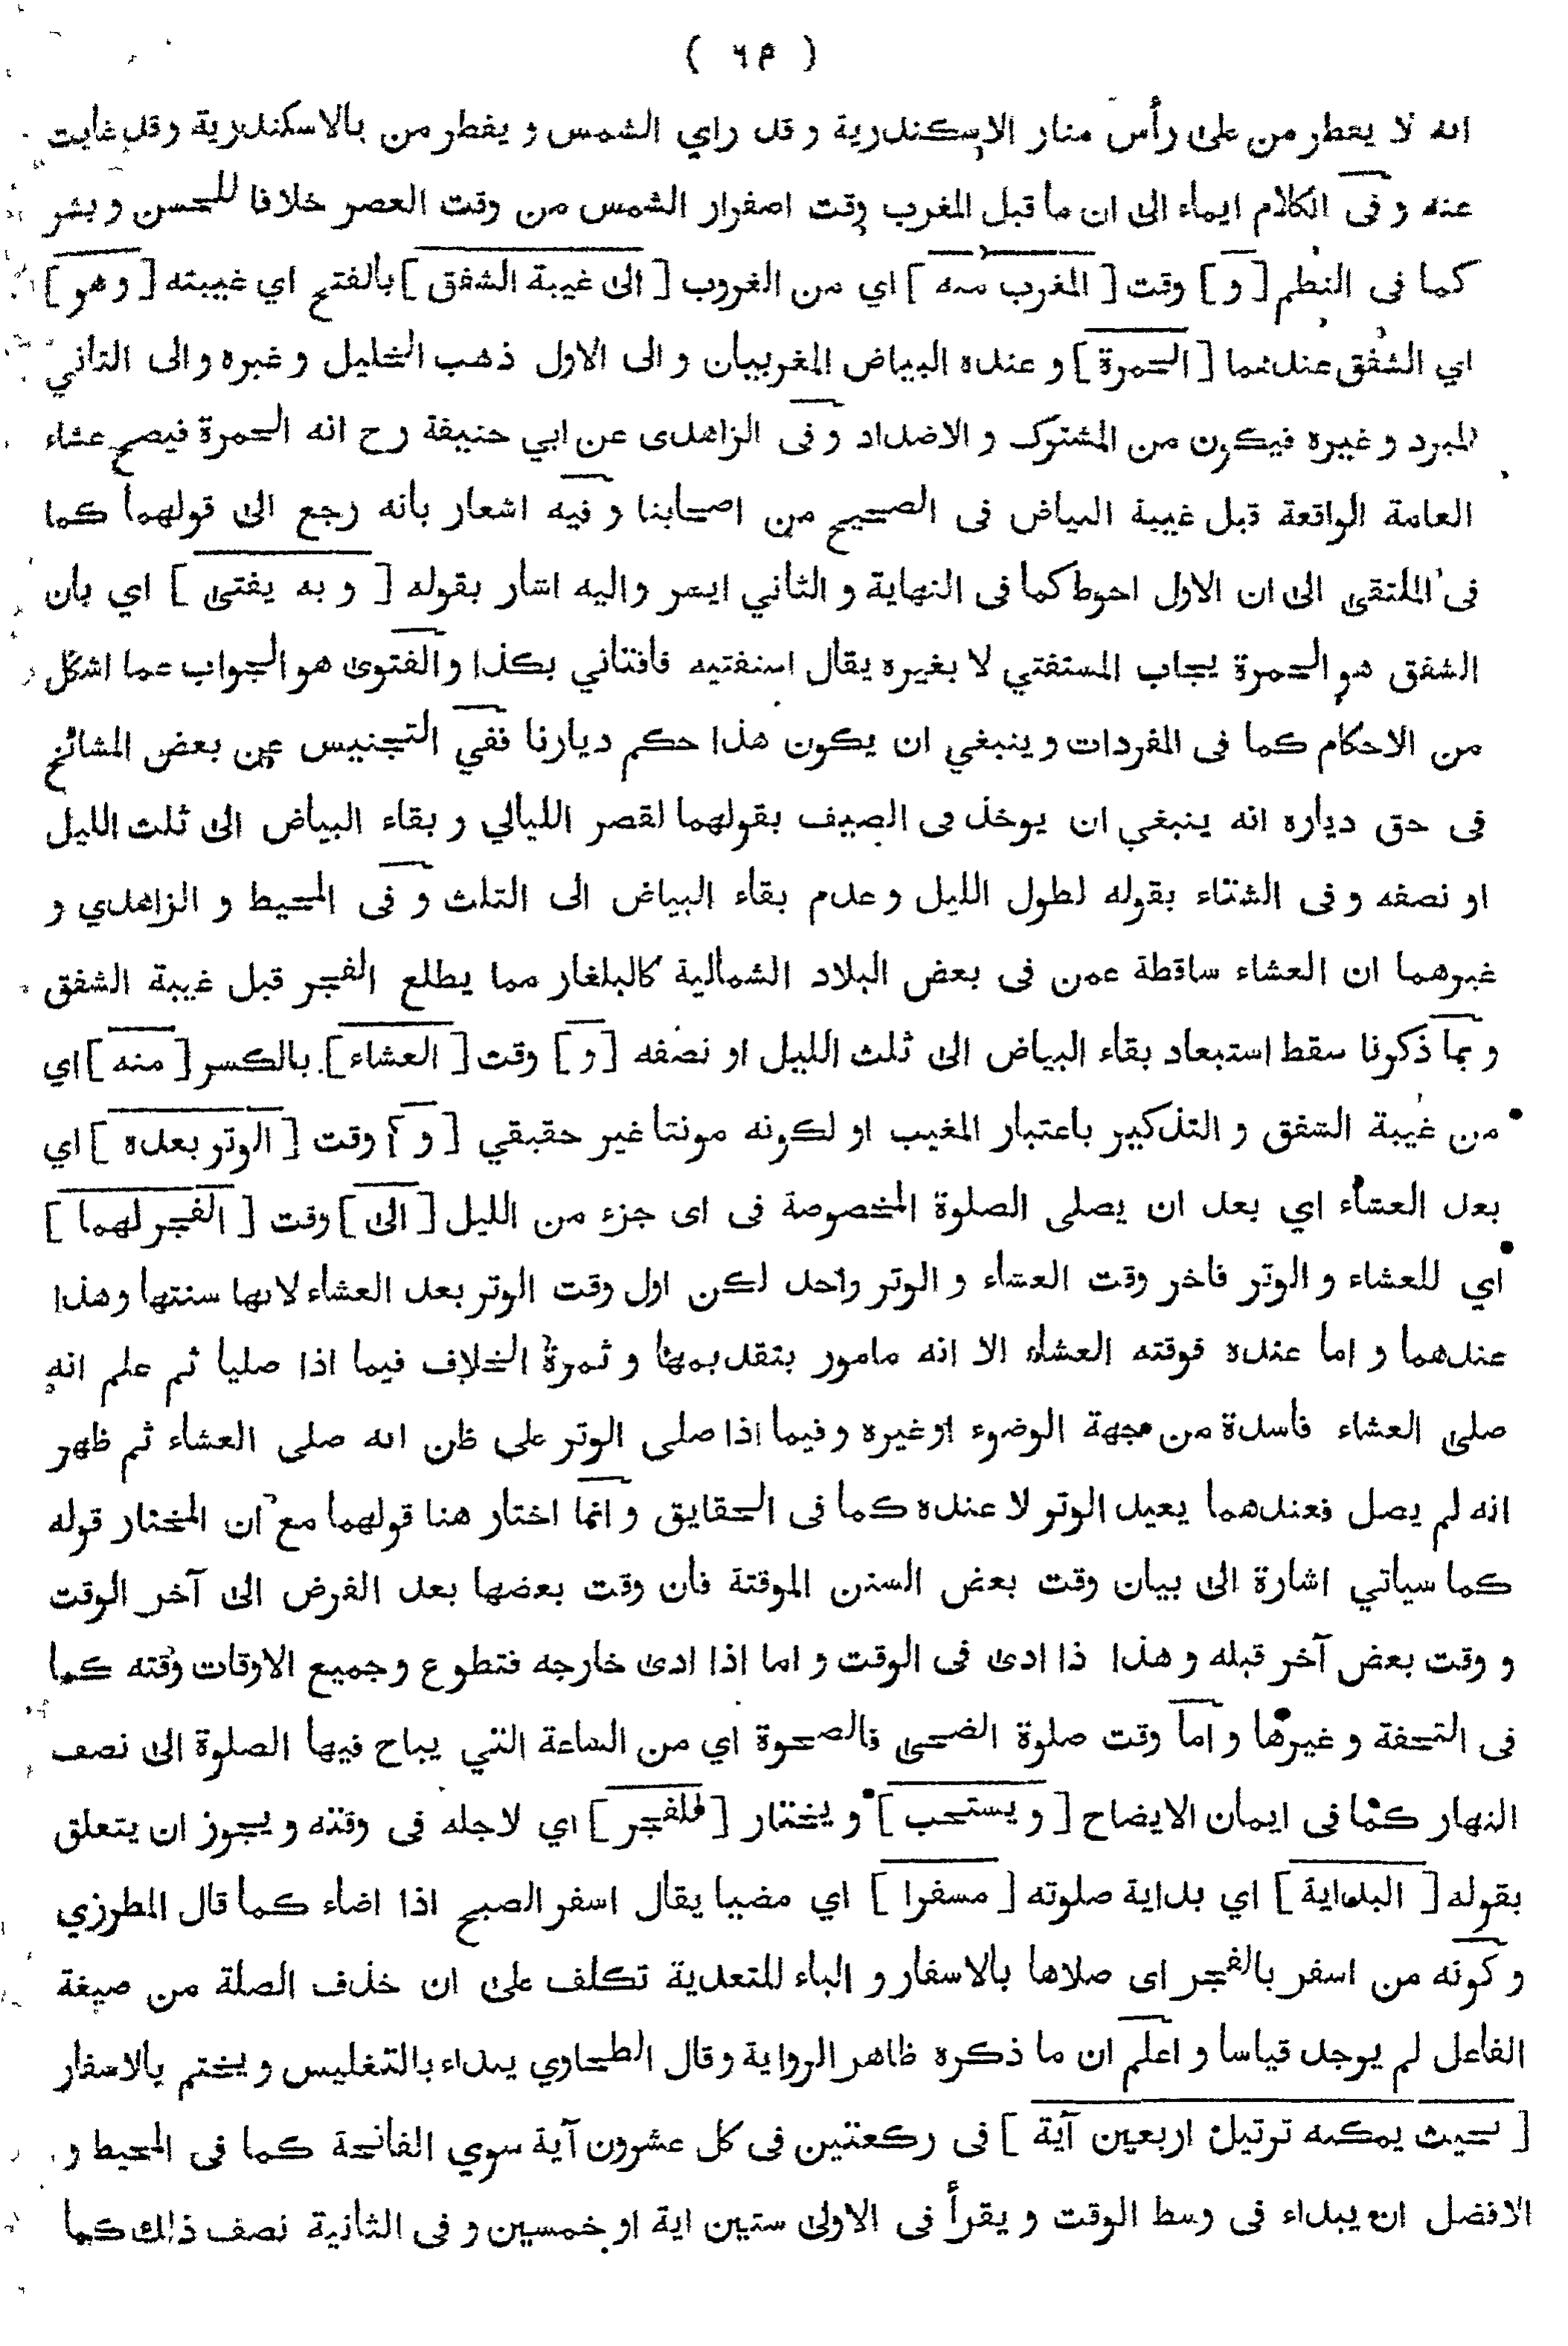 ( ٦٩ )
انه لا يفطر من على رأس منار الاسكندرية و قد راي الشمس و يفطر من بالاسكندرية و قد غابت
عنه و فى الكلام ايماء الى ان ما قبل المغرب وقت اصفرار الشمس من وقت العصر خلافا للحسن و بشر
كما فى النظم [ و ] وقت [ المغرب منه ] اي من الغروب [ الى غيبة الشفق ] بالفتح اي غيبيته [ و هو ]
اي الشفق عندهما [ الحمرة ] و عنده البياض المغربيان و الى الاول ذهب الخليل و غيره والى الثاني
المبرد و غيره فيكون من المشترك و الاضداد و فى الزاهدى عن ابي حنيفة رح انه الحمرة فيصح عشاء
العامة الواقعة قبل غيبة البياض فى الصحيح من اصحابنا و فيه اشعار بأنه رجع الى قولهما كما
فى الملتقى الى ان الاول احوط كما فى النهاية و الثاني ايسر واليه اشار بقوله [ و به يفتى ] اي بان
الشفق هو الحمرة يجاب المستفتي لا بغيره يقال استفتيه فافتاني بكذا و الفتوى هو الجواب عما اشكل
من الاحكام كما فى المفردات و ينبغي ان يكون هذا حكم ديارنا ففي التجنيس عن بعض المشائخ
فى حق دياره انه ينبغي ان يوخذ فى الصيف بقولهما لقصر الليالي و بقاء البياض الى ثلث الليل
او نصفه و فى الشتاء بقوله لطول الليل و عدم بقاء البياض الى الثلث و فى المحيط و الزاهدي و
غيرهما ان العشاء ساقطة عمن فى بعض البلاد الشمالية كالبلغار مما يطلع الفجر قبل غيبة الشفق
و بما ذكرنا سقط استبعاد بقاء البياض الى ثلث الليل او نصفه [ و ] وقت [ العشاء ] بالكسر [ منه ] اي
من غيبة الشفق و التذكير باعتبار المغيب او لكونه مونثا غير حقيقي [ و ] وقت [ الوتر بعده ] اي
بعد العشاء اي بعد ان يصلى الصلوة المخصوصة فى اى جزء من الليل [ الى ] وقت [ الفجر لهما ]
اي للعشاء و الوتر فاخر وقت العشاء و الوتر واحد لكن اول وقت الوتر بعد العشاء لانها سنتها و هذا
عندهما و اما عنده فوقته العشاء الا انه مامور بتقديمها و ثمرة الخلاف فيما اذا صليا ثم علم انه
صلى العشاء فاسدة من جهة الوضوء او غيره و فيما اذا صلى الوتر على ظن انه صلى العشاء ثم ظهر
انه لم يصل فعندهما يعيد الوتر لا عنده كما فى الحقايق و انما اختار هنا قولهما مع ان المختار قوله
كما سياتي اشارة الى بيان وقت بعض السنن الموقتة فان وقت بعضها بعد الفرض الى آخر الوقت
و وقت بعض آخر قبله و هذا ذا ادى فى الوقت و اما اذا ادى خارجه فتطوع و جميع الاوقات وقته كما
فى التحفة و غيرها و اما وقت صلوة الضحى فالضحوة اي من الساعة التي يباح فيها الصلوة الى نصف
النهار كما فى ايمان الايضاح [ و يستحب ] و يختار [ للفجر ] اي لاجله فى وقته و يجوز ان يتعلق
بقوله [ البداية ] اي بداية صلوته [ مسفرا ] اي مضيا يقال اسفر الصبح اذا اضاء كما قال المطرزي
و كونه من اسفر بالفجر اى صلاها بالاسفار و الباء للتعدية تكلف على ان حذف الصلة من صيغة
الفاعل لم يوجد قياسا و اعلم ان ما ذكره ظاهر الرواية و قال الطحاوي يبداء بالتغليس و يختم بالاسفار
[ بحيث يمكنه ترتيل اربعين آية ] فى ركعتين فى كل عشرون آية سوي الفاتحة كما فى المحيط و
الافضل ان يبداء فى وسط الوقت و يقرأ فى الاولى ستين اية او خمسين و فى الثانية نصف ذلك كما